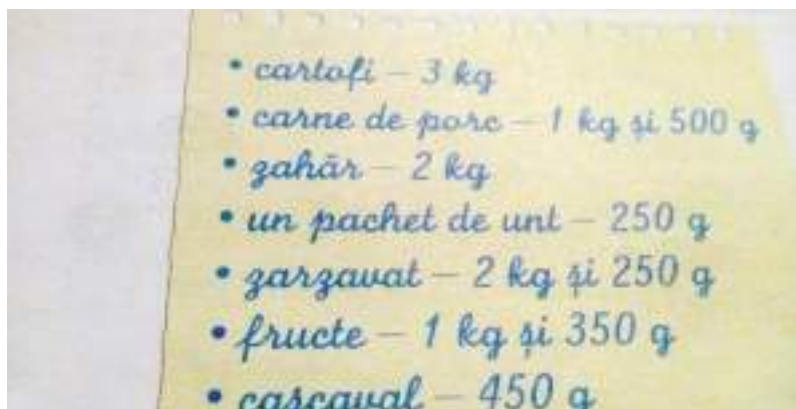 • cartofi – 3 kg
• carne de porc – 1 kg și 500 g
• zahăr – 2 kg
• un pachet de unt – 250 g
• zarzavat – 2 kg și 250 g
• fructe – 1 kg și 350 g
• cașcaval – 450 g